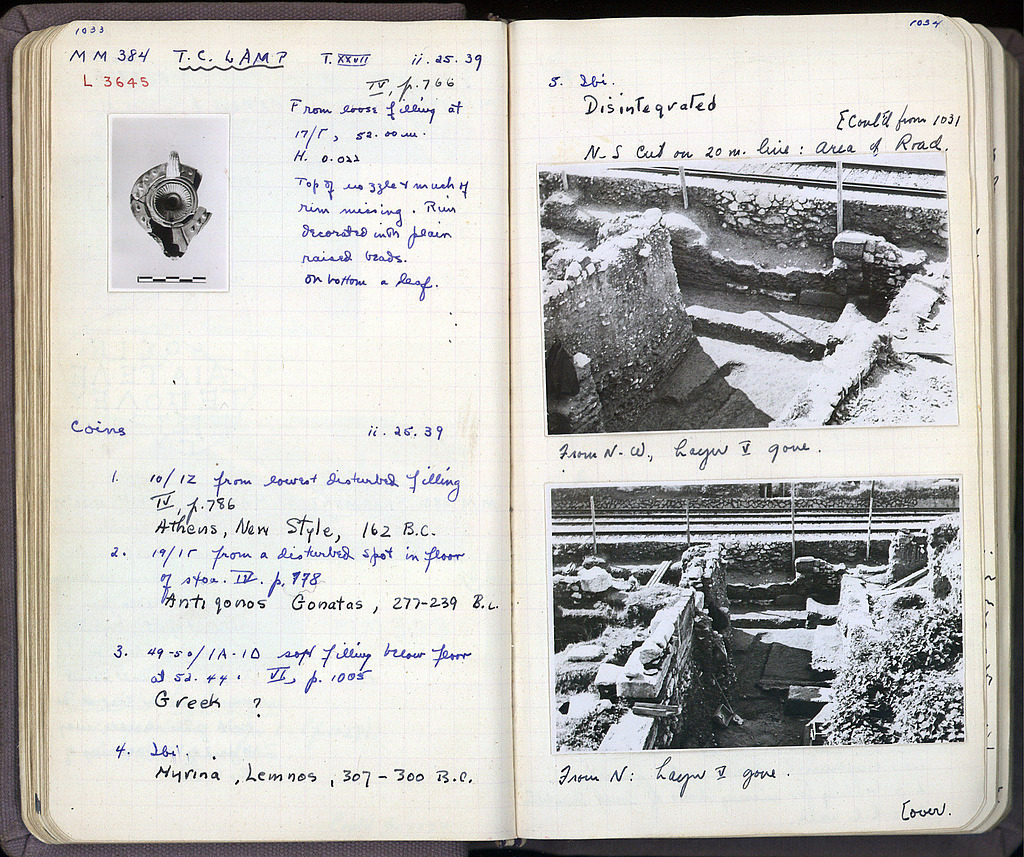 1033
MM 384 T.C. LAMP T. XXVII ii. 25. 39
L 3645
IV, p. 766
From loose filling at
17/Γ, 52.00 m.
H. 0.022
Top of nozzle & much of
rim missing. Rim
decorated with plain
raised beads.
On bottom a leaf.
Coins ii. 25. 39
1. 10/IZ from lowest disturbed filling
IV, p. 786
Athens, New Style, 162 B.C.
2. 19/IΓ from a disturbed spot in floor
of stoa. IV. p. 778
Antigonos Gonatas, 277-239 B.C.
3. 49-50/IA-IΔ soft filling below floor
at 52.44. VI, p. 1005
Greek ?
4. Ibi.
Myrina, Lemnos, 307-300 B.C.
1034
5. Ibi.
Disintegrated
[Cont'd from 1031
N-S Cut on 20 m. line: Area of Road.
From N-W, Layer V gone.
From N: Layer V gone.
[over.